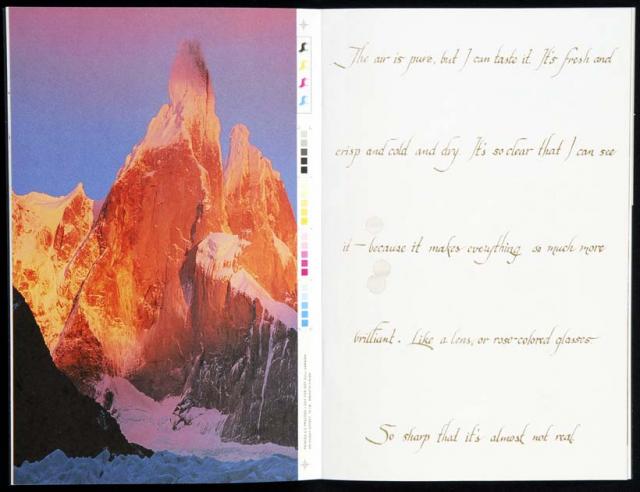 The air is pure, but I can taste it. It's fresh and
crisp and cold and dry. It's so clear that I can see
it — because it makes everything so much more
brilliant. Like a lens, or rose-colored glasses
So sharp that it's almost not real.